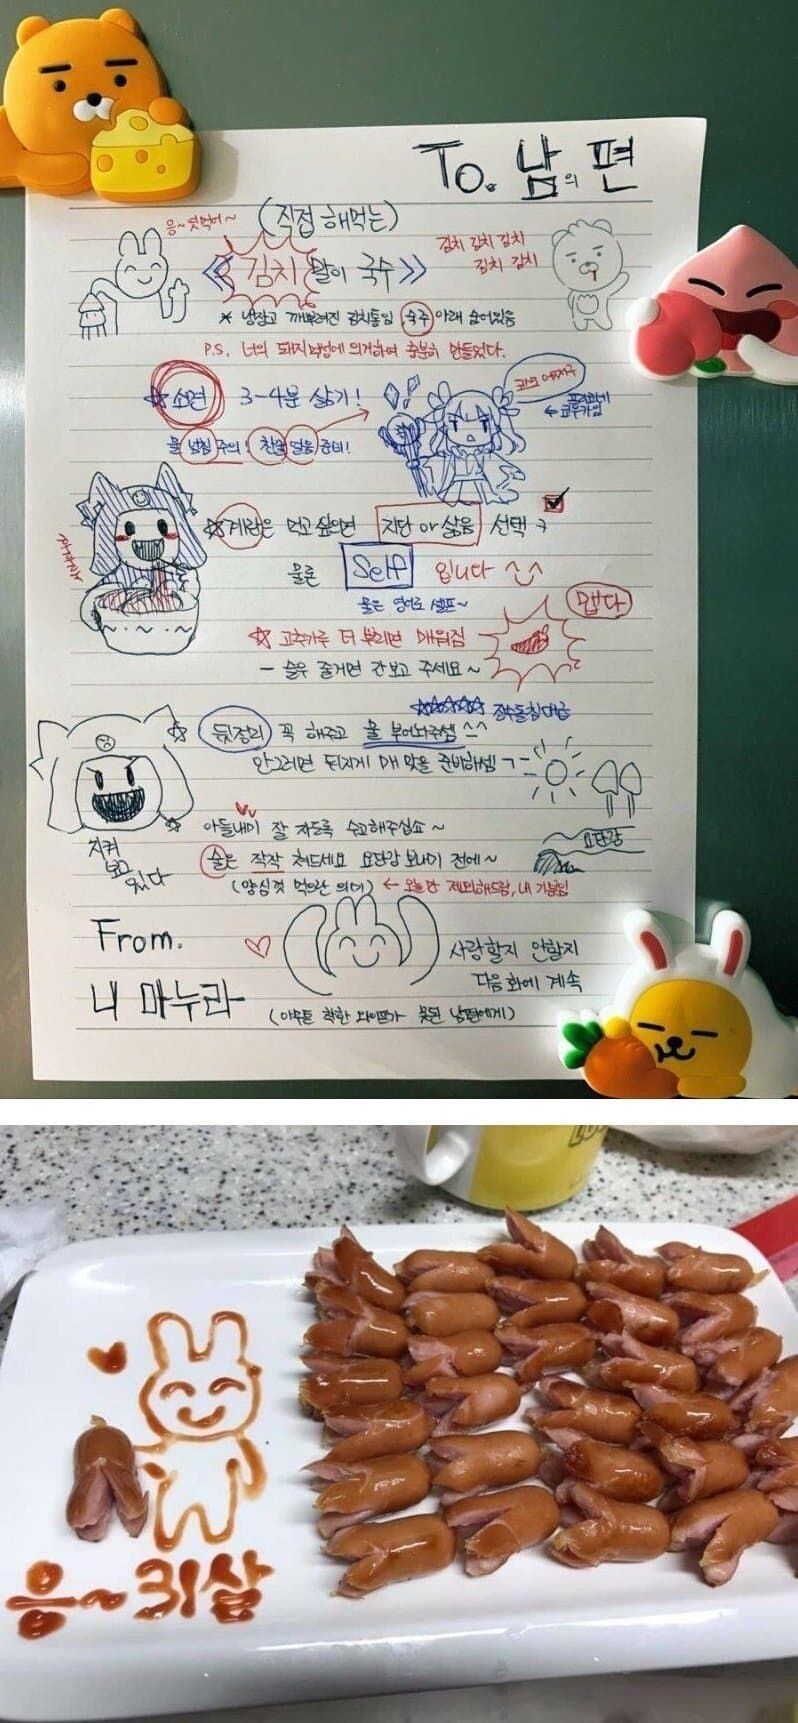 To. 남의 편
(직접 해먹는)
응~ 엿먹어~
《 김치 말이 국수 》
김치 김치 김치
김치 김치
* 냉장고 깨부숴진 김치통임 숙주 아래 숨어있음
P.S. 너의 돼지력에 의거하여 충분히 만들었다.
☆ 소면 3-4분 삶기!
물 넘침 주의! 찬물 얼음 준비!
☆ 계란은 먹고 싶으면 지단 or 삶음 선택
물론 Self 입니다 ^_^
물은 영어로 셀프~
맵다
☆ 고추가루 더 뿌리면 매워짐
- 슬우 줄거면 간보고 주세요~
☆ 뒷정리 꼭 해주고 물 부어놔주셈 ^^
안그러면 뒤지게 매 맞을 준비하셈 ㄱ-
☆ 아들내미 잘 자도록 수고해주십쇼~
술은 작작 쳐드세요 요단강 보내기 전에~
요단강
(양심껏 먹으란 의미) ← 오늘만 제외해드림, 내 기분임
지켜
보고
있다
From.
내 마누라
사랑할지 안할지
다음화에 계속
(아주 착한 와이프가 못된 남편에게)
응~ 31살